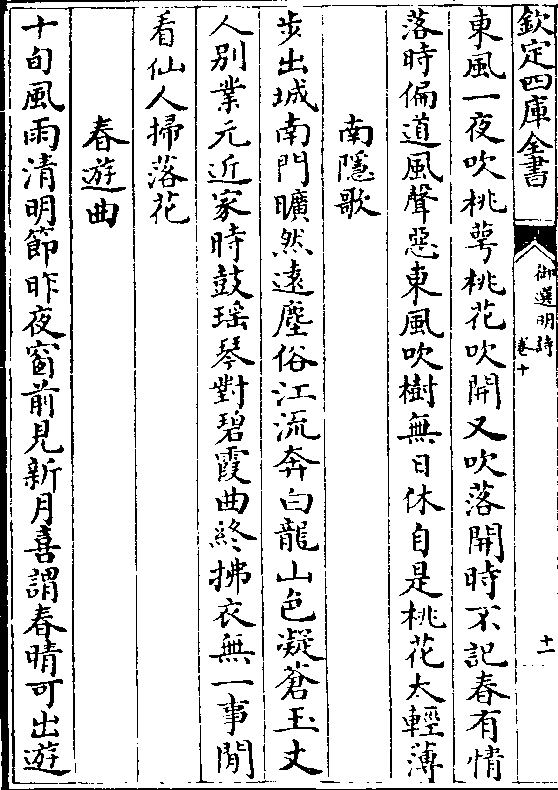 欽定四庫全書
御選明詩
卷十
十一
東風一夜吹桃萼桃花吹開又吹落開時不記春有情
落時偏道風聲惡東風吹樹無日休自是桃花太輕薄
南隱歌
步出城南門曠然遠塵俗江流奔白龍山色凝蒼玉丈
人別業元近家時鼓瑶琴對碧霞曲終拂衣無一事閒
看仙人掃落花
春遊曲
十旬風雨清明節昨夜窗前見新月喜謂春晴可出遊